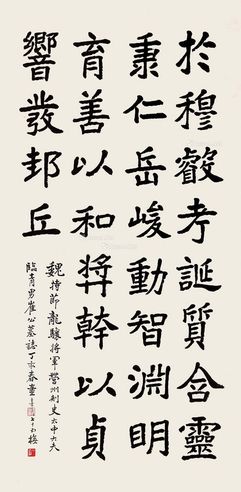 於穆叡考誕質含靈
秉仁岳峻動智淵明
育善以和獎幹以貞
響發邽丘
魏持節龍驤將軍營州刺史太中大夫
臨青男崔公墓誌丁亥春